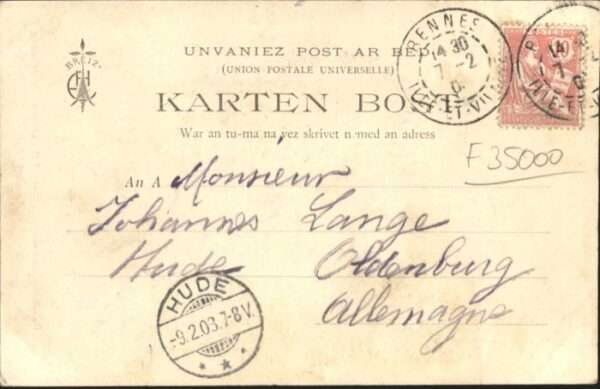 BREIZ
UNVANIEZ POST AR BED
(UNION POSTALE UNIVERSELLE)
KARTEN BOST
War an tu-ma na vez skrivet nemed an adress
RENNES
14 30
7 -2
ILLE-ET-VILAINE
POSTES
10
14
7
ILLE-ET-V
F 35000
An A Monsieur
Johannes Lange
Hude Oldenburg
Allemagne
HUDE
-9.2.03.7-8V.